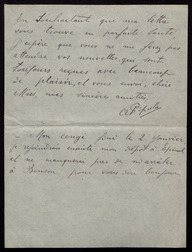 En Souhaitant que ma lettre
vous trouve en parfaite santé,
j'espère que vous ne me ferez pas
attendre vos nouvelles, qui sont
toujours reçues avec beaucoup
de plaisir, et vous envoie chère
Miss, mes sincères amitiés,
Mon congé fini le 2 Janvier
je rejoindrai ensuite mon dépôt à Epinal
et ne manquerai pas de m'arrêter
à pour vous dire bonjour